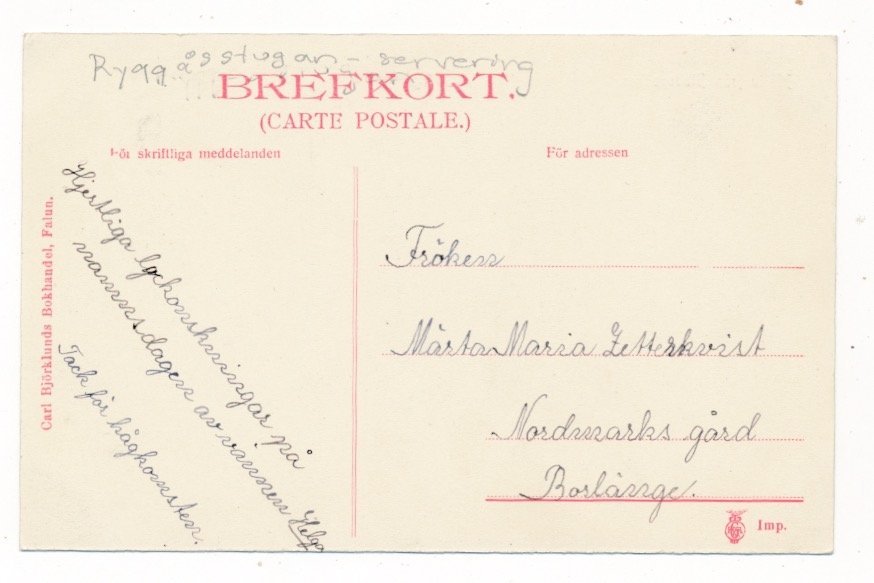 Ryggåsstugan - servering
BREFKORT.
(CARTE POSTALE.)
För skriftliga meddelanden
För adressen
Carl Björklunds Bokhandel, Falun.
Hjertliga lyckonskningar på
namnsdagen av vännen Helga
Tack för hågkomsten.
Fröken
Märta Maria Zetterkvist
Nordmarks gård
Borlänge.
Imp.